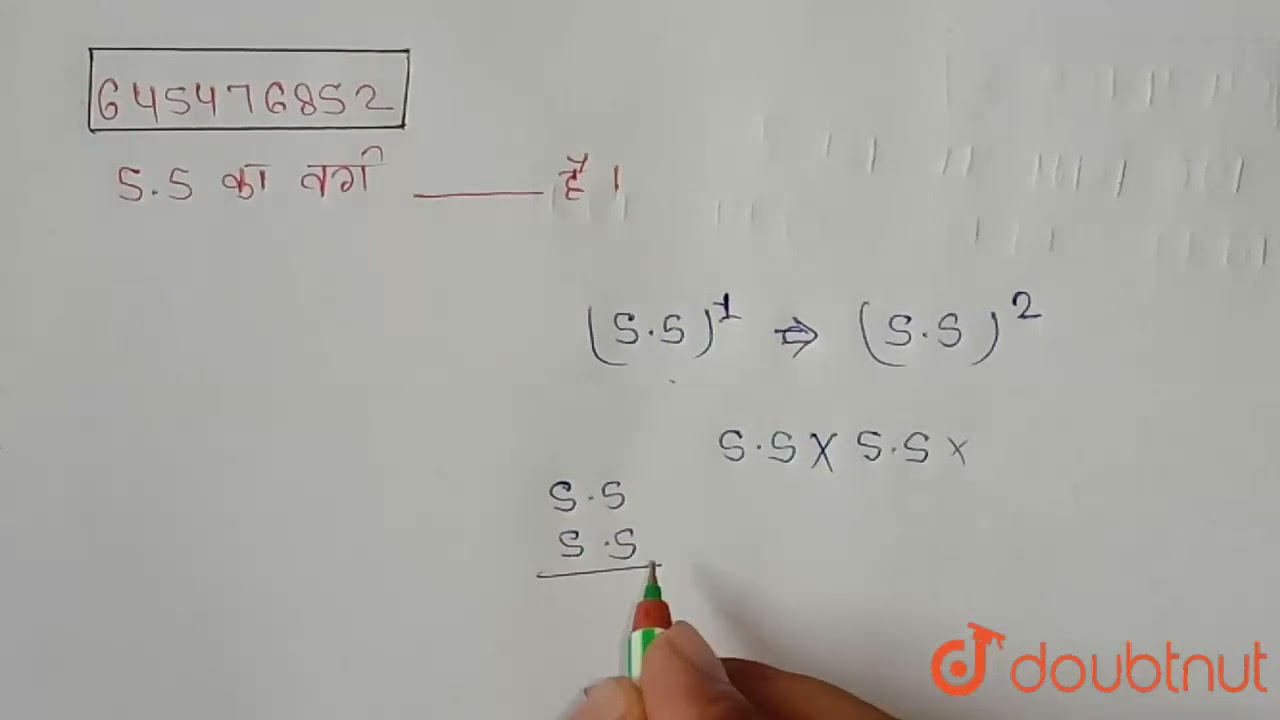 645476852
5.5 का वर्ग ____ है ।
(5.5)¹ ⇒ (5.5)²
5.5 X 5.5 ×
5.5
5.5
doubtnut